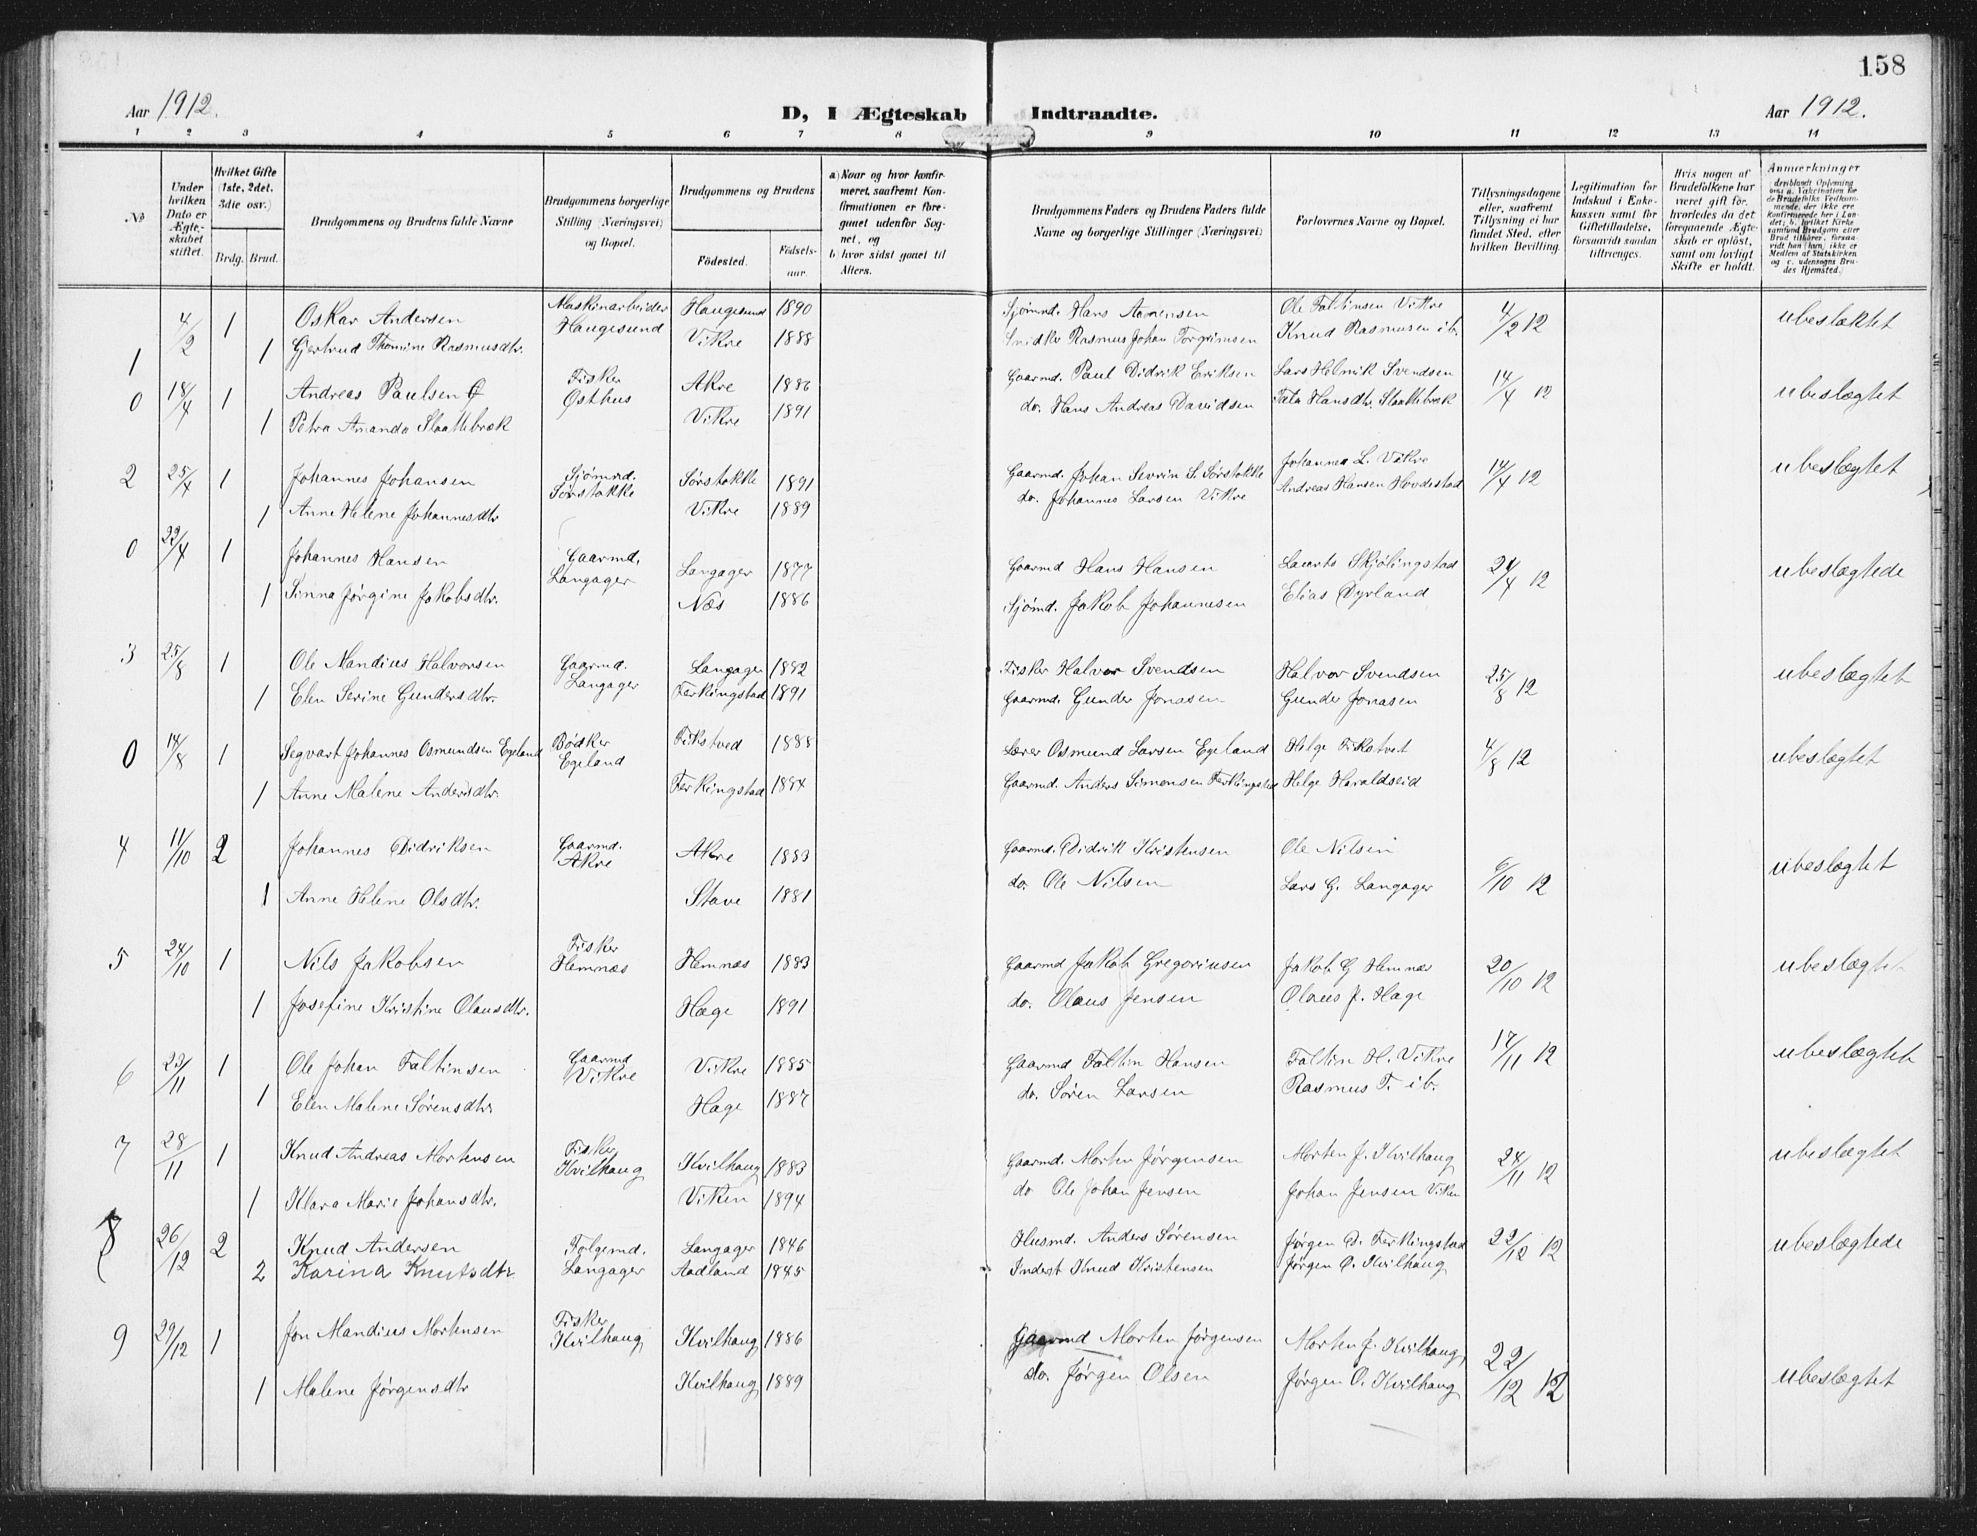 158
Aar 1912.
D, I Ægteskab Indtraadte.
Aar 1912.
1 2 3 4 5 6 7 8 9 10 11 12 13 14
№
Under hvilken Dato er Ægteskabet stiftet.
Hvilket Gifte (1ste, 2det, 3die osv.)
Brdg. Brud.
Brudgommens og Brudens fulde Navne
Brudgommens borgerlige Stilling (Næringsvei) og Bopæl.
Brudgommens og Brudens
Fødested.
Fødselsaar.
a) Naar og hvor konfirmeret, saafremt Konfirmationen er foregaaet udenfor Sognet, og
b) hvor sidst gaaet til Alters.
Brudgommens Faders og Brudens Faders fulde Navne og borgerlige Stillinger (Næringsvei)
Forlovernes Navne og Bopæl.
Tillysningsdagene eller, saafremt Tillysning ei har fundet Sted, efter hvilken Bevilling.
Legitimation for Indskud i Enkekassen samt for Giftetilladelse, forsaavidt saadan tiltrænges.
Hvis nogen af Brudefolkene har været gift før, hvorledes da det foregaaende Ægteskab er opløst, samt om lovligt Skifte er holdt.
Anmerkninger
1 4/2 1 Oskar Andersen Maskinarbeider Haugesund Haugesund 1890 Sjømd. Hans Ole Faltinsen Vikre 4/2 12 ubeslæktet
1 Gjertrud Thomine Rasmusdtr. Vikre 1888 Snidker Rasmus Johan Torgrimsen Knud Rasmusen ib.
0 18/4 1 Andreas Paulsen Fisker Østhus Akre 1886 Gaarmd. Paul Didrik Eriksen Lars Helmik Svendsen 14/4 12 ubeslægtet
1 Petra Amanda Slaattebræk Vikre 1891 do. Hans Andreas Davidsen Hansdtr. Slaattebræk
2 25/4 1 Johannes Johansen Sjømnd. Sørstokke Sørstokke 1891 Gaarmd. Johan Sevrin S. Sørstokke Johannes L. Vikre 14/4 12 ubeslægtet
1 Anne Helene Johannesdtr Vikre 1889 do. Johannes Larsen Vikre Andreas Hansen Hovdestad
0 22/4 1 Johannes Hansen Gaarmd. Langager Langager 1877 Gaarmd Hans Hansen Laurits Skjølingstad 21/4 12 ubeslægtede
1 Sinna Jørgine Jakobsdtr. Næs 1886 Sjømd. Jakob Johannesen Elias Dyrland
3 25/8 1 Ole Mandius Halvorsen Gaarmd. Langager Langager 1882 Fisker Halvor Svendsen Halvor Svendsen 25/8 12 ubeslægtet
1 Elen Serine Gundersdtr. Ferkingstad 1891 Gaarmd. Gunder Jonasen Gunder Jonasen
0 14/8 1 Segvart Johannes Osmundsen Egeland Bødker Egeland Fikstved 1888 Lærer Osmund Larsen Egeland Helge Fikstvet 4/8 12 ubeslægtet
1 Anne Malene Andersdtr. Ferkingstad 1884 Gaarmd. Anders Simonsen Ferkingstad Helge Haraldseid
4 11/10 2 Johannes Didriksen Gaarmd. Akre Akre 1883 Gaarmd. Didrik Kristensen Ole Nilsen 6/10 12 ubeslægtet
1 Anne Helene Olsdtr. Stave 1881 do. Ole Nilsen Lars G. Langager
5 24/10 1 Nils Jakobsen Fisker Hemnæs Hemnæs 1883 Gaarmd Jakob Gregoriusen Jakob G Hemnæs 20/10 12 ubeslægtet
1 Josefine Kristine Olausdtr. Hæge 1891 do. Olaus Jensen Olaus J. Hæge
6 23/11 1 Ole Johan Faltinsen Gaarmd Vikre Vikre 1885 Gaarmd Faltin Hansen Faltin H. Vikre 17/11 12 ubeslægtet
1 Elen Malene Sørensdtr. Hage 1887 do. Søren Larsen Rasmus F. ib.
7 28/11 1 Knud Andreas Mortensen Fisker Kvilhaug Kvilhaug 1883 Gaarmd. Morten Jørgensen Morten J. Kvilhaug 24/11 12 ubeslægtet
1 Klara Marie Johansdtr. Viken 1894 do Ole Johan Jensen Johan Jensen Viken
8 26/12 2 Knud Andersen Følgemd. Langager Langager 1846 Husmd. Anders Sørensen Jørgen D. Ferkingstad 22/12 12 ubeslægtede
2 Karina Knutsdtr. Aadland 1845 Inderst Knud Kristensen Jørgen O. Kvilhaug
9 29/12 1 Jon Mandius Mortensen Fisker Kvilhaug Kvilhaug 1886 Gaarmd Morten Jørgensen Morten J. Kvilhaug 22/12 12 ubeslægtet
1 Malene Jørgensdtr Kvilhaug 1889 do. Jørgen Olsen Jørgen O. Kvilhaug